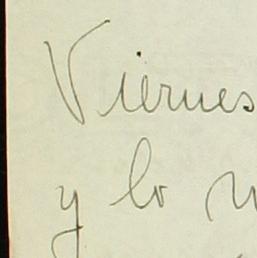 Viernes
y lo